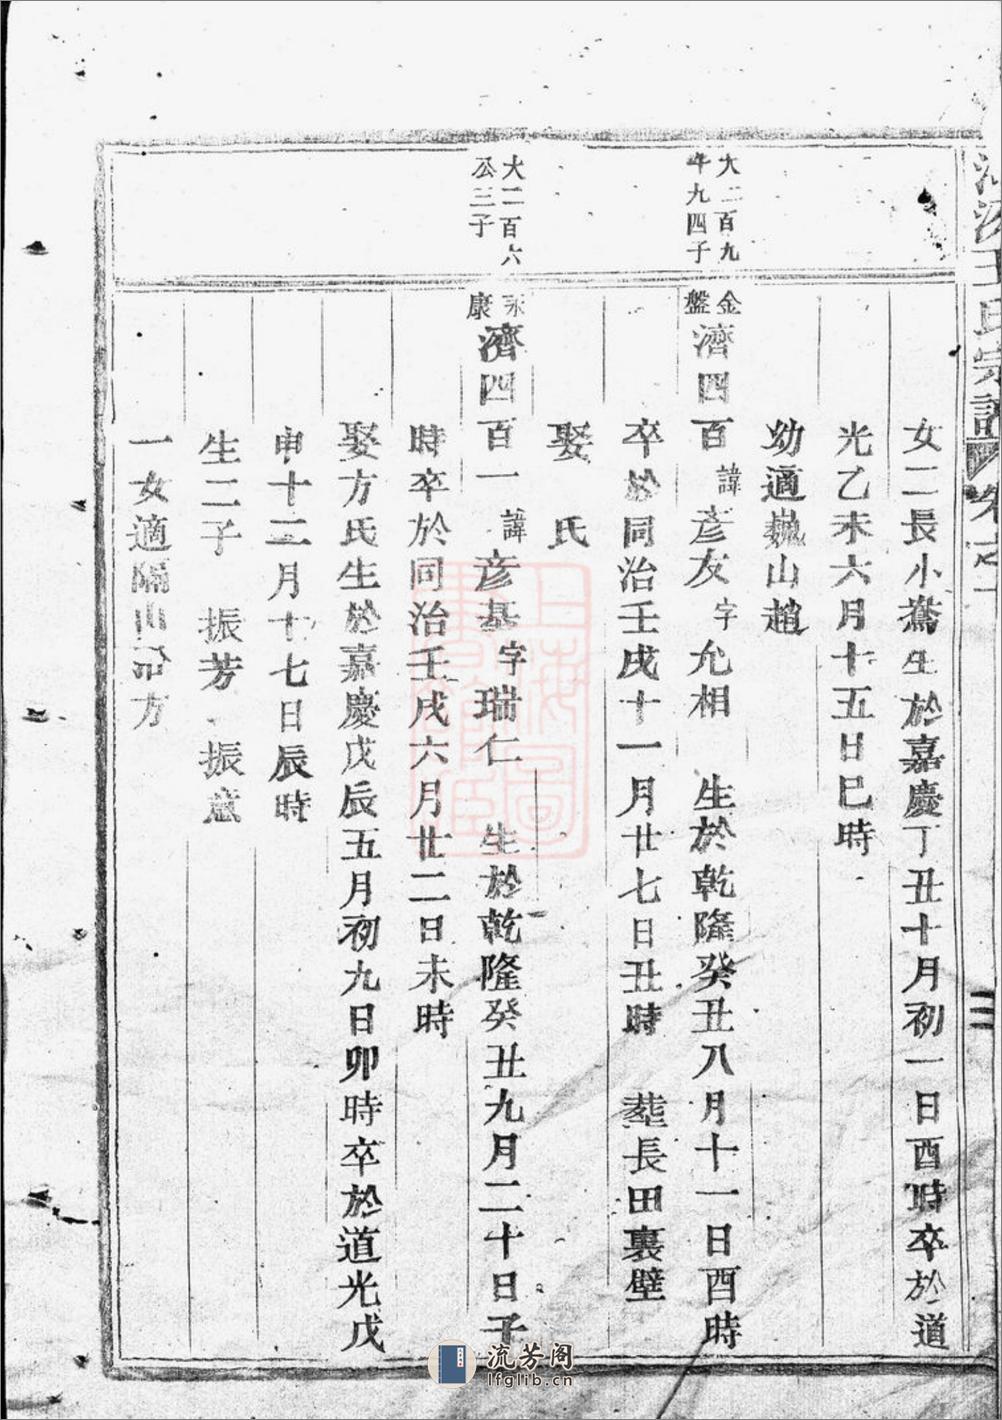 王氏宗譜 卷之十
女二長小鶯生於嘉慶丁丑十月初一日酉時卒於道
光乙未六月十五日巳時
幼適巍山趙
大二百九
年九四子
金
盤
濟四百諱彦友字允相 生於乾隆癸丑八月十一日酉時
卒於同治壬戌十一月廿七日丑時 塟長田裏壁
娶 氏
大二百六
公三子
永
康
濟四百一諱彦基字瑞仁 生於乾隆癸丑九月二十日子
時卒於同治壬戌六月廿二日未時
娶方氏生於嘉慶戊辰五月初九日卯時卒於道光戊
申十二月十七日辰時
生二子 振芳 振意
一女適隔山方
上海圖書館藏
流芳阁
lfglib.cn